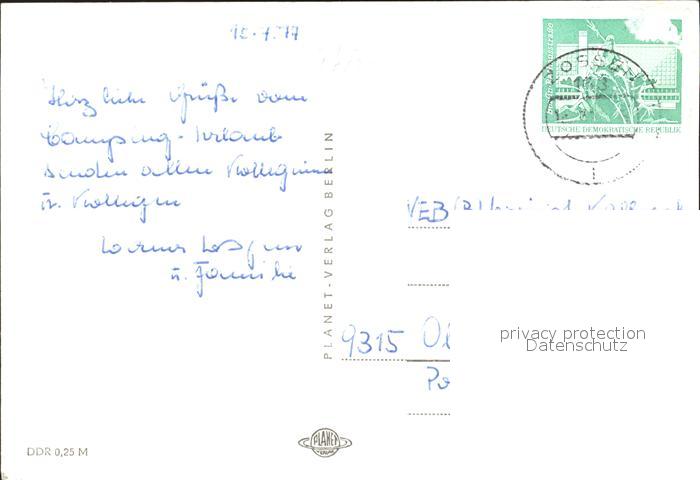 15.7.77
Herzliche Grüße vom
Camping-Urlaub
senden allen Kolleginnen
u. Kollegen
Werner
u. Familie
PLANET-VERLAG BERLIN
DEUTSCHE DEMOKRATISCHE REPUBLIK
NOSSEN
VEB
9315 Ol
Po
privacy protection
Datenschutz
PLANET
VERLAG
DDR 0,25 M